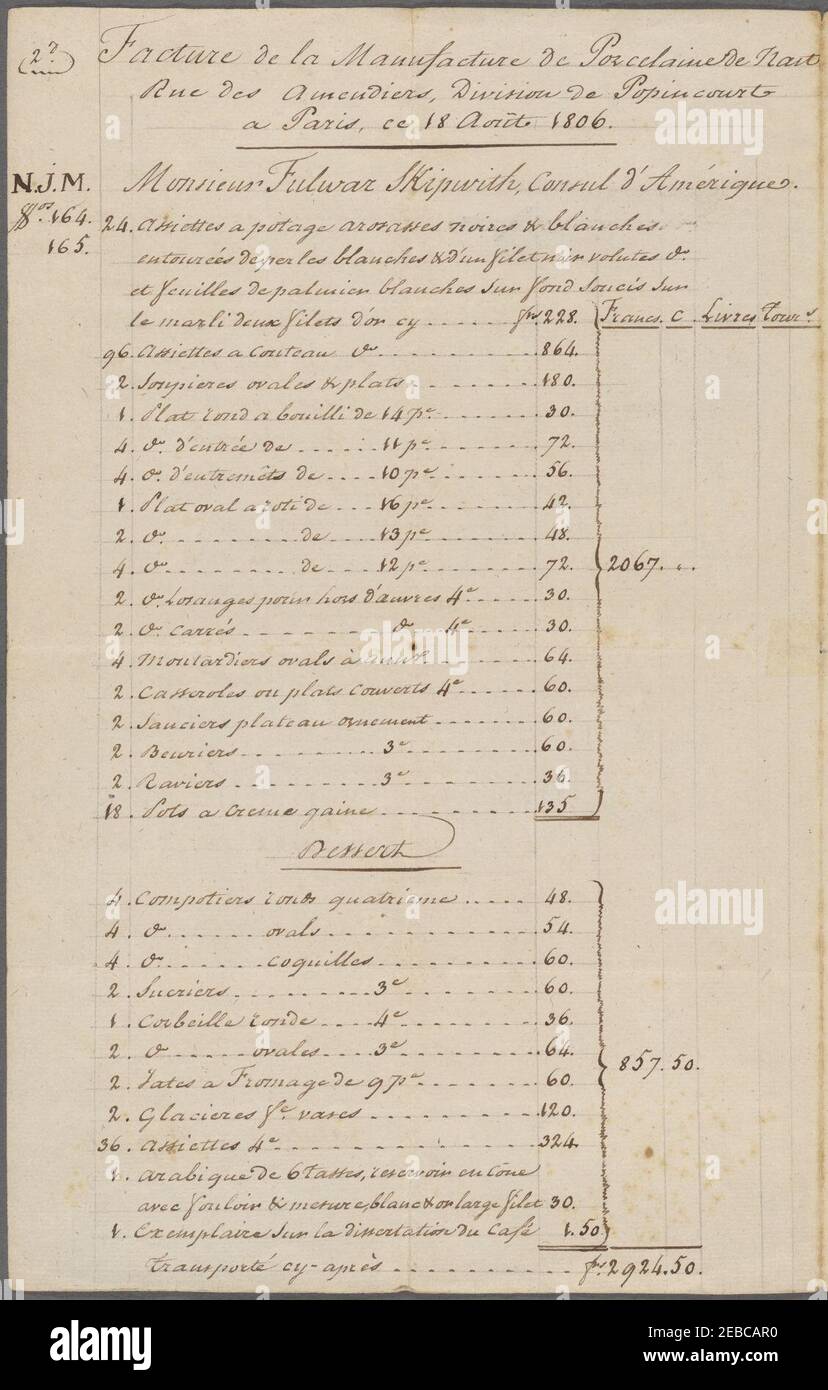 2?
Facture de la Manufacture de Porcelaine de Nast
Rue des Amendiers, Division de Popincourt
a Paris, ce 18 Août 1806.
N.J.M.
Monsieur Fulwar Skipwith, Consul d'Amérique.
Nos. 164.
165.
24. Assiettes a potage a rosasses noires & blanches
entourées de perles blanches & d'un filet noir volutes do
et feuilles de palmier blanches sur fond soucis sur
le marli deux filets d'or cy ..... frs 228.
Francs. C. Livres Tours
96. Assiettes a Couteau do ..... 864.
2. Soupieres ovales & plats ..... 180.
1. Plat rond a bouilli de 14 pe ..... 30.
4. do d'entrée de ..... 11 pe ..... 72.
4. do d'entremêts de .... 10 pe ..... 56.
1. Plat oval a roti de ... 16 pe ..... 42.
2. do ..... de .... 13 pe ..... 48.
4. do ..... de ... 12 pe ..... 72.
2067. "
2. do Losanges pour hors d'œuvres 4e ..... 30.
2. do Carrés ..... do 4e ..... 30.
4. Moutardiers ovals à ..... 64.
2. Casseroles ou plats couverts 4e ..... 60.
2. Sauciers plateau ornement ..... 60.
2. Beuriers ..... 3e ..... 60.
2. Raviers ..... 3e ..... 36.
18. Pots a Creme gaine ..... 135
Dessert
4. Compotiers ronds quatrieme ..... 48.
4. do ..... ovals ..... 54.
4. do ..... coquilles ..... 60.
2. Sucriers ..... 3e ..... 60.
1. Corbeille ronde .... 4e ..... 36.
2. do ..... ovales .... 3e ..... 64.
857.50.
2. Jates a Fromage de 9 pe ..... 60.
2. Glacieres fe vases ..... 120.
36. Assiettes 4e ..... 324
1. Arabique de 6 Tasses, reservoir en Cône
avec fouloir & mesure, blanc & or large filet 30.
1. Exemplaire sur la dissertation du Café 1.50
Transporté cy-après ..... frs 2924.50.
alamy
Image ID: 2EBCAR0
www.alamy.com